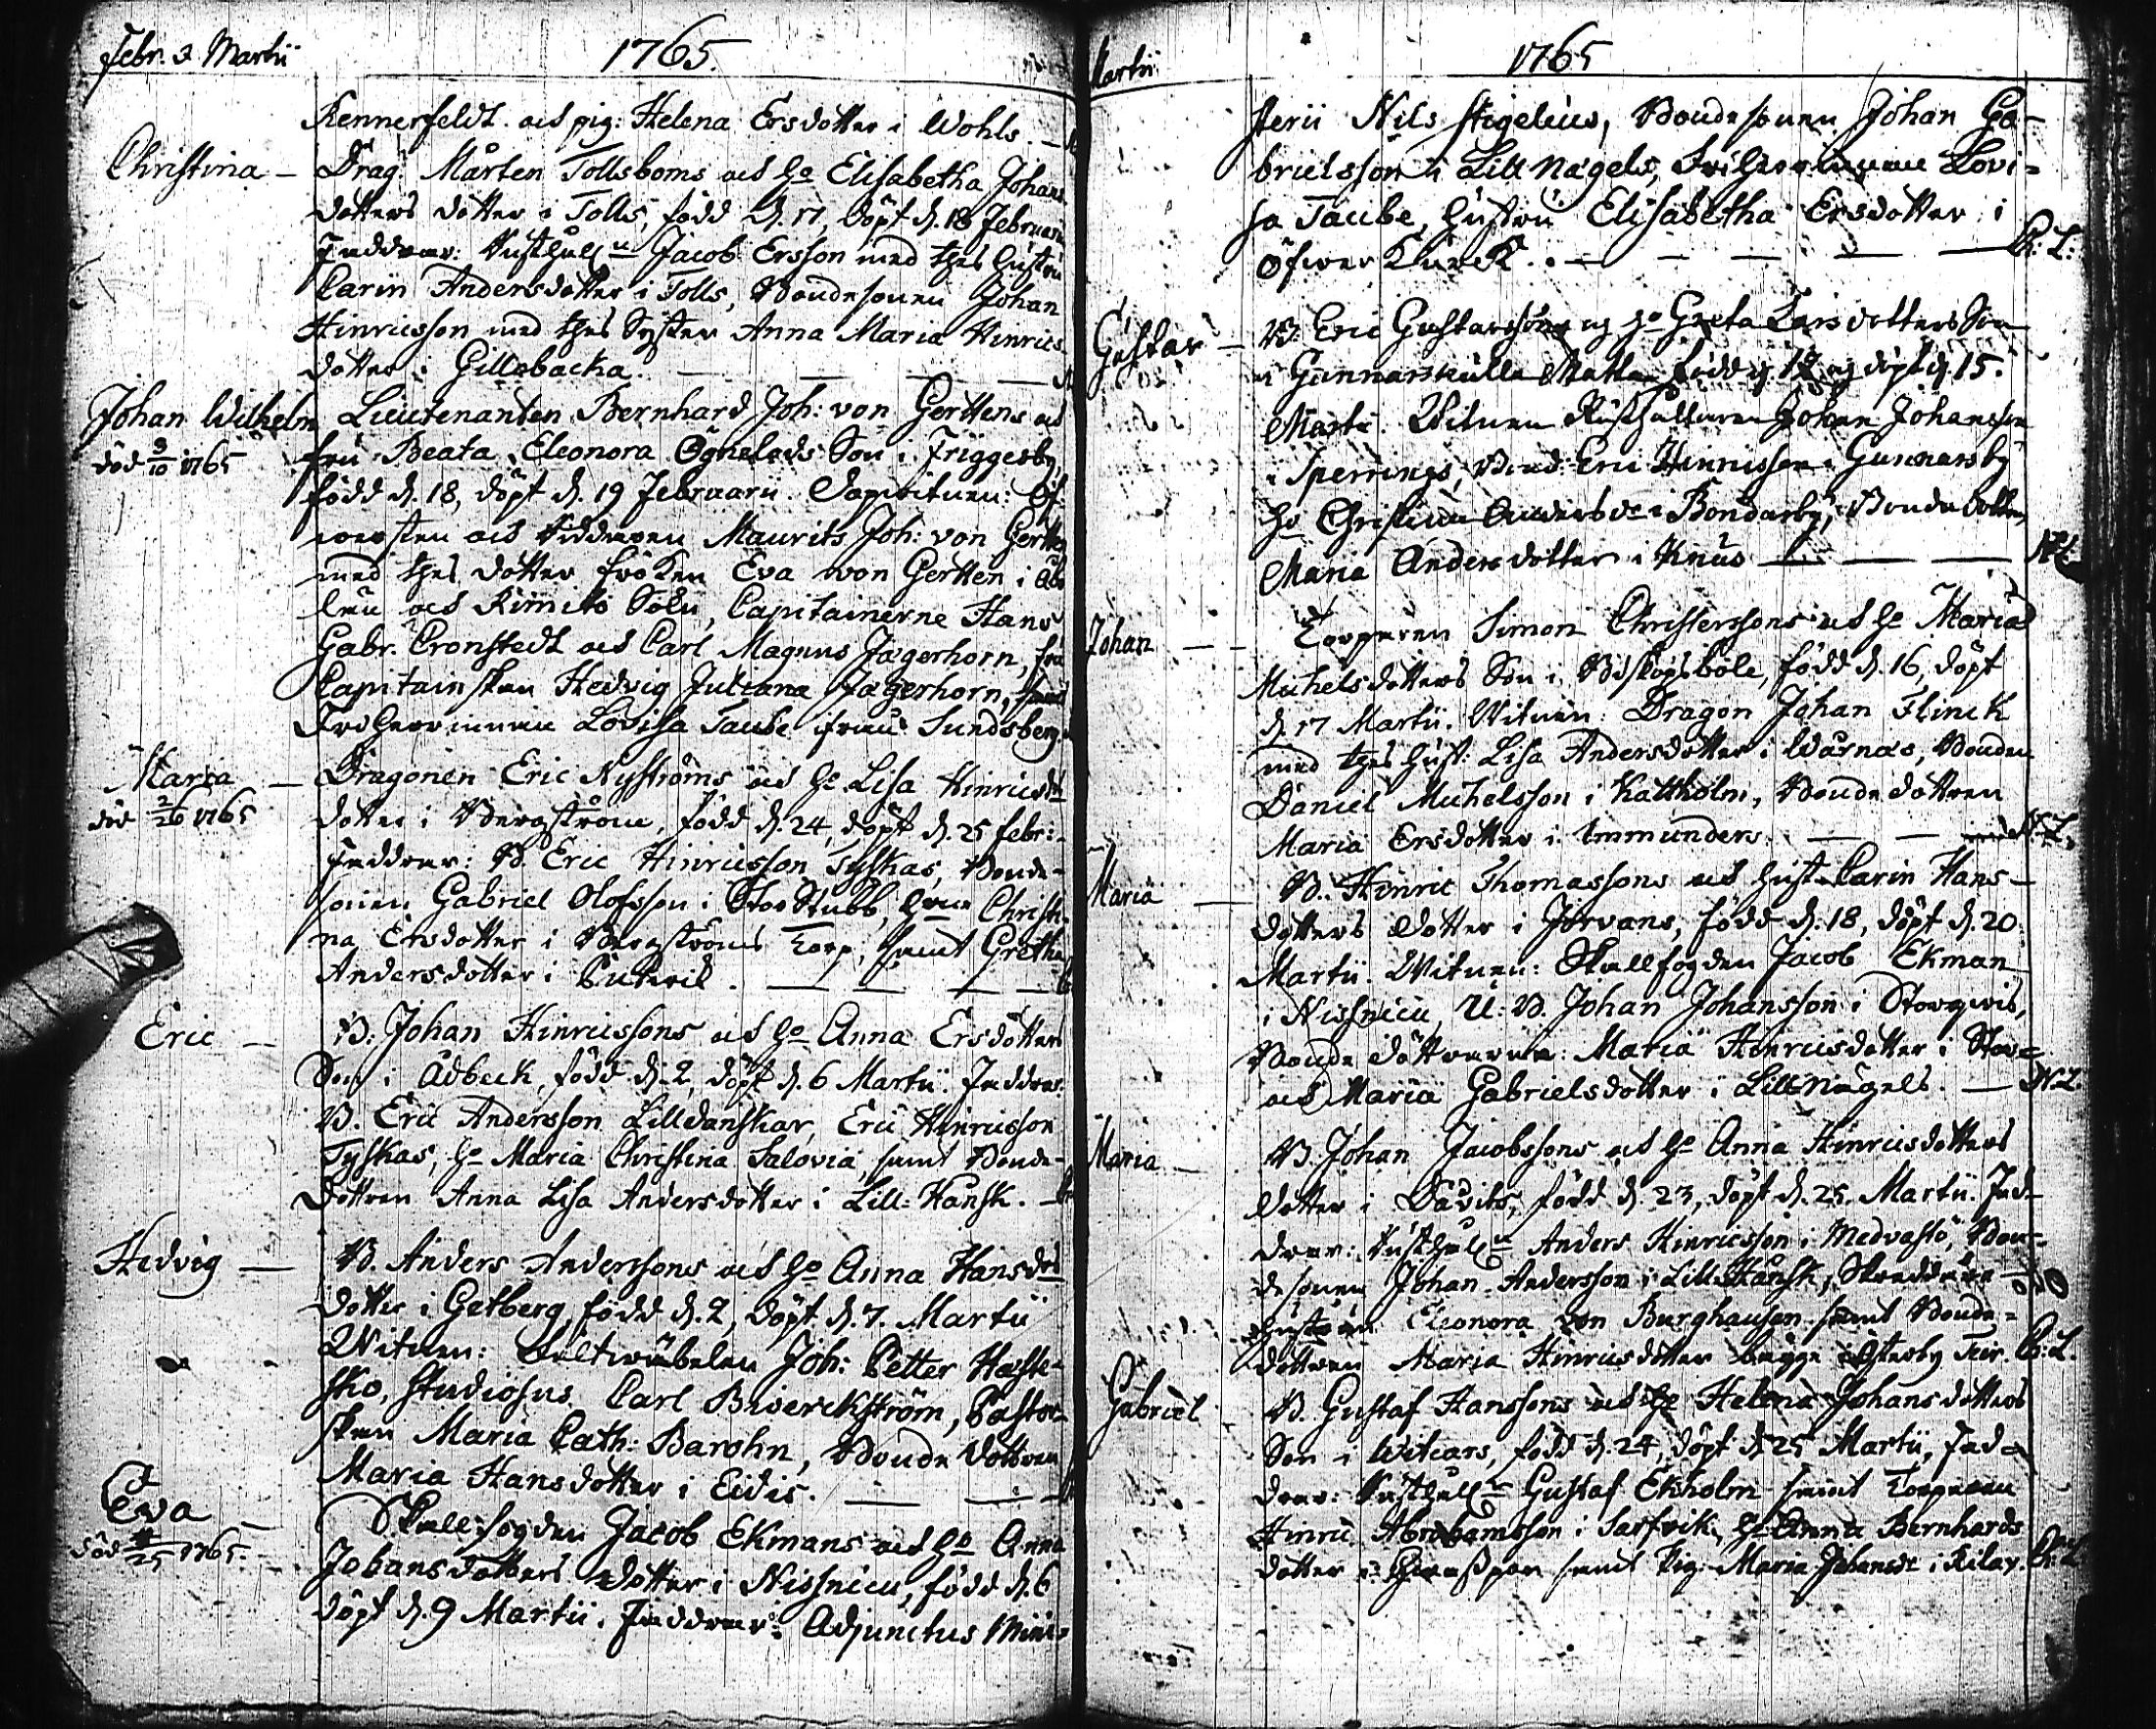 Febr. & Martii 1765.
Kennerfeldt. ach pig: Helena Ersdotter i Wohls.
Christina — Drag: Mårten Tollsboms ach ho Elisabetha Johans
dotters dotter i Tolls, född d. 17, döpt d. 18 Februarii
Faddrar: Rusthåll:n Jacob Ersson med thes hustru
Carin Andersdotter i Tolls, Bondesonen Johan
Hinricsson med thes Syster Anna Maria Hinrics-
dotter i Gillobacka. — — — —
Johan Wilhelm Lieutenanten Bernhard Joh: von Gerttens ach
död 3/10 1765 fru Beata Eleonora Ögnelods Son i Friggesby,
född d. 18, döpt d. 19 Februarii. Dopwitnen: Öf-
wersten och Riddaren Maurits Joh: von Gertten
med thes dotter fröken Eva von Gertten i Åbo
län och Kimito Sokn, Capitainerne Hans
Gabr. Cronstedt ach Carl Magnus Jägerhorn, fru
Capitainskan Hedvig Juliana Jägerhorn, samt
Friherrinnan Lovisa Taube ifrån Sundsberg.
Maria — Dragonen Eric Nyströms ach ho Lisa Hinrics d:rs
död 2/26 1765 dotter i Bergström, född d. 24, döpt d. 25 febr:
Faddrar: B. Eric Hinricsson Tyskas, Bonde-
sonen Gabriel Olofsson i Stor Stubb, Christi-
na Ersdotter i Bergströms Torp, samt Gretha
Andersdotter i . — — — —
Eric — B: Johan Hinricssons ach ho Anna Ersdotters
Son i Ådbeck, född d. 2, döpt d. 6 Martii. Faddrar:
B. Eric Andersson Lilldanskar, Eric Hinricsson
Tyskas, ho Maria Christina Salovia, samt Bonde-
dottren Anna Lisa Andersdotter i Lill-Hansk. —
Hedvig — B. Anders Anderssons ach ho Anna Hansd:rs
dotter i Getberg, född d. 2, döpt d. 7. Martii
Witnen: Fältwäbelen Joh: Petter Hæste-
sko, Studiosus Carl Bwerckström, Pastor-
skan Maria Cath: Barohn, Bonde dottren
Maria Hansdotter i Eidis. — — —
Eva — Skallfogden Jacob Ekmans ach ho Anna
död 4/25 1765. Johansdotters dotter i Nissnicu, född d. 6
döpt d. 9 Martii. Faddrar: Adjunctus Mini-
Martii 1765
sterii Nils Stigelius, Bondesonen Johan Ga-
brielsson i Lill Nägels, Friherrinnan Lovi-
sa Taube, hustru Elisabetha Ersdotter i
Öfwer Kurck. — — — — — Ch: L:
Gustav — B: Eric Gustavssons og ho Greta Larsdotters Son
i Gunnarskulla Matla född d. 12 og döpt d. 15.
Martii. Witnen Rusthållaren Johan Johansson
i Sperrings, Bond. Eric Hinricsson i Gunnarsby
ho Christina Anders d:r i Bondarby, Bondedottren
Maria Andersdotter i Knus — — — N:L:
Johan — — Torparen Simon Christerssons ach ho Maria
Michelsdotters Son i Biskopsböle, född d. 16, döpt
d. 17 Martii. Witnen: Dragon Johan Flinck
med thes hust: Lisa Andersdotter i Wårnäs, Bonden
Daniel Michelsson i Kattholm, Bondedottren
Maria Ersdotter i Immunders — — N:L.
Maria — B. Hinric Thomassons ach hust. Carin Hans-
dotters dotter i Jorvans, född d. 18, döpt d. 20
Martii. Witnen: Skallfogden Jacob Ekman
i Nissnicu, U: B. Johan Johansson i Storqwis,
Bonde döttrarna: Maria Hinricsdotter i Stor=
ach Maria Gabrielsdotter i Lill Nägels. — N.L.
Maria — B. Johan Jacobssons ach ho Anna Hinricsdotters
dotter i Davits, född d. 23, döpt d. 25. Martii. Fad-
drar: Rusthåll:n Anders Hinricsson i Medvastö, Bon-
desonen Johan Andersson i Lill Hansk, Skräddare
hustrun Eleonora von Burghausen samt Bonde-
dottren Maria Hinricsdotter bägge i Österby Fur. Ch: L.
Gabriel B. Gustaf Hanssons ach ho Helena Johansdotters
Son i Witcars, född d. 24, döpt d. 25 Martii, Fad-
drar: Rusthåll:n Gustaf Ekholm samt Torparen
Hinric Abrahamsson i Sarfvik, ho Anna Bernhards
dotter i samt Pig: Maria Johansd:r i Kilar. Ch: L